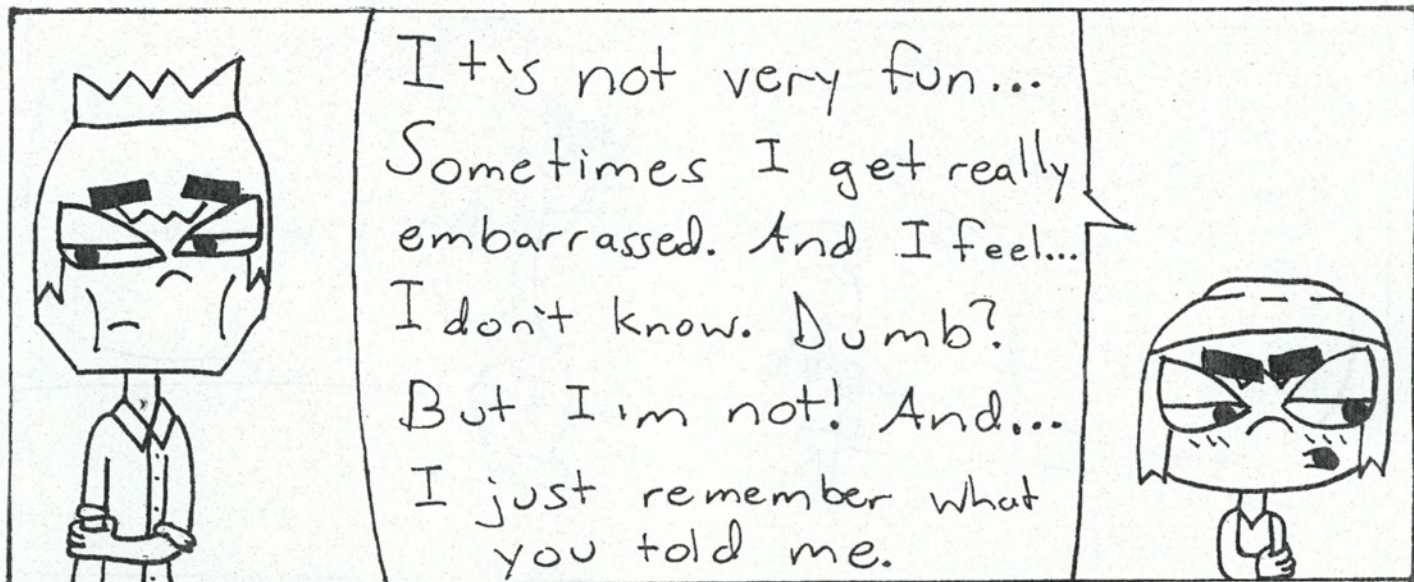 It's not very fun...
Sometimes I get really
embarrassed. And I feel...
I don't know. Dumb?
But I'm not! And...
I just remember what
you told me.